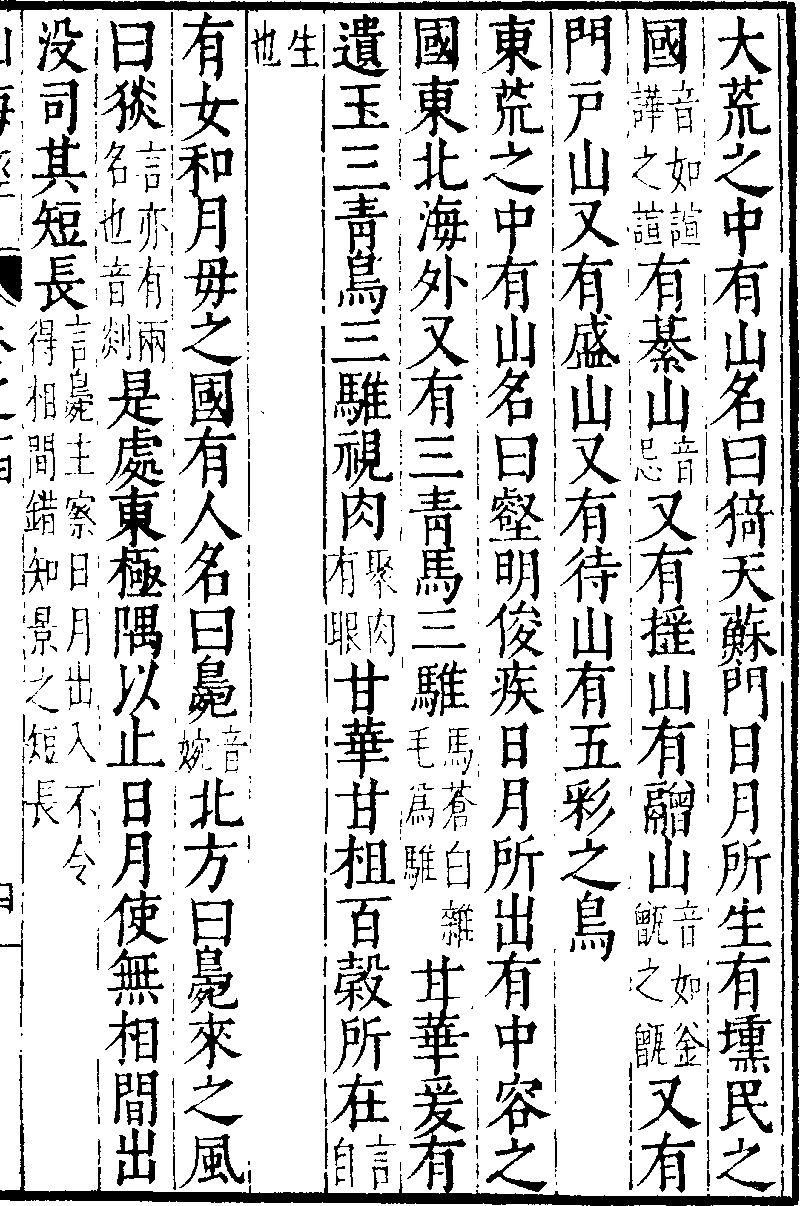 大荒之中有山名曰猗天蘇門日月所生有壎民之
國音如諠譁之諠有綦山音忌又有搖山有䰝山音如釜甑之甑又有
門戸山又有盛山又有待山有五彩之鳥
東荒之中有山名曰壑明俊疾日月所出有中容之
國東北海外又有三青馬三騅馬蒼白雜毛爲騅甘華爰有
遺玉三青鳥三騅視肉聚肉有眼甘華甘柤百榖所在言自
生也
有女和月母之國有人名曰䲶音婉北方曰䲶來之風
曰㹿言亦有兩名也音剡是處東極隅以止日月使無相間出
没司其短長言䲶主察日月出入不令得相間錯知景之短長